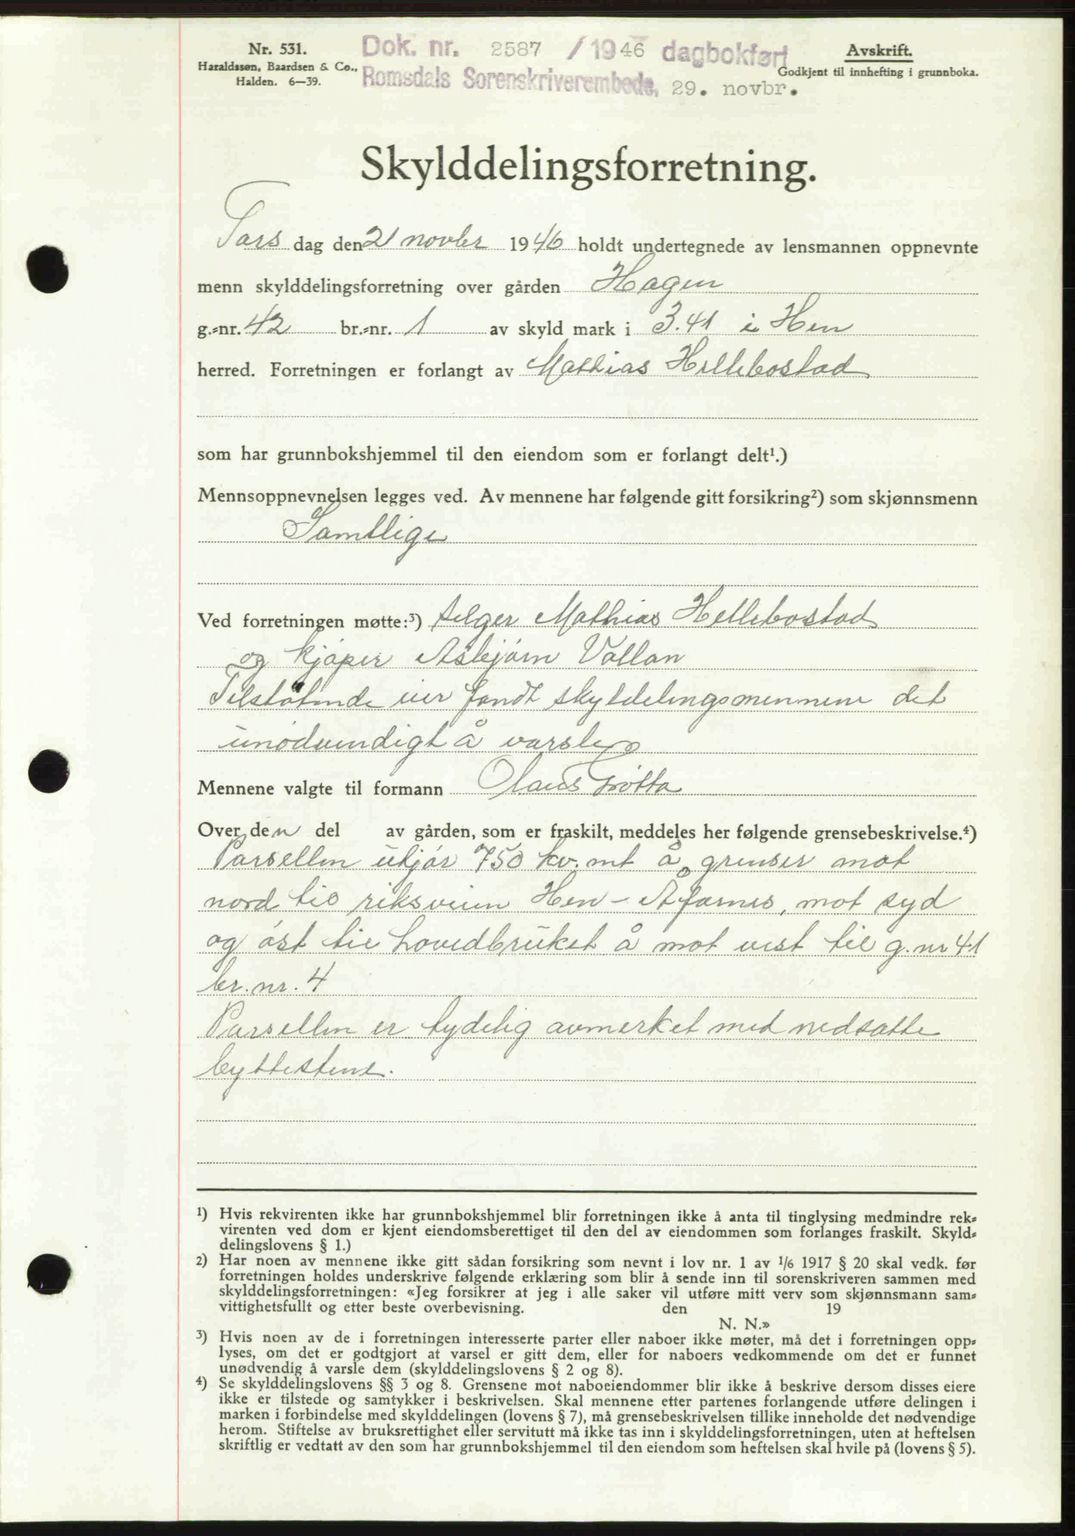 Nr. 531.
Haraldssøn, Baardsen & Co.,
Halden. 6—39.
Dok. nr. 2587 / 1946 dagbokført
Romsdals Sorenskriverembede, 29. novbr.
Avskrift.
Godkjent til innhefting i grunnboka.
Skylddelingsforretning.
Tors dag den 21 novbr 1946 holdt undertegnede av lensmannen oppnevnte
menn skylddelingsforretning over gården Hagen
g.-nr. 42 br.-nr. 1 av skyld mark i 3.41 i Hen
herred. Forretningen er forlangt av Mathias Hellebostad
som har grunnbokshjemmel til den eiendom som er forlangt delt¹.)
Mennsoppnevnelsen legges ved. Av mennene har følgende gitt forsikring²) som skjønnsmenn
Samtlige
Ved forretningen møtte:³) selger Mathias Hellebostad
og kjøper Asbjørn Vollan
Tilstøtende eier fandt skylddelingsmennene det
unødvendigt å varsle
Mennene valgte til formann Olaus Grøtta
Over den del av gården, som er fraskilt, meddeles her følgende grensebeskrivelse.⁴)
Parsellen utgjør 750 kv. mt å grenser mot
nord til riksveien Hen – Åfarnes, mot syd
og øst til hovedbruket å mot vest til g.nr 41
br. nr. 4
Parsellen er tydelig avmerket med nedsatte
byttestene.
¹) Hvis rekvirenten ikke har grunnbokshjemmel blir forretningen ikke å anta til tinglysing medmindre rek-
virenten ved dom er kjent eiendomsberettiget til den del av eiendommen som forlanges fraskilt. Skyld-
delingslovens § 1.)
²) Har noen av mennene ikke gitt sådan forsikring som nevnt i lov nr. 1 av 1/6 1917 § 20 skal vedk. før
forretningen holdes underskrive følgende erklæring som blir å sende inn til sorenskriveren sammen med
skylddelingsforretningen: «Jeg forsikrer at jeg i alle saker vil utføre mitt verv som skjønnsmann sam-
vittighetsfullt og etter beste overbevisning. den 19
N. N.»
³) Hvis noen av de i forretningen interesserte parter eller naboer ikke møter, må det i forretningen opp-
lyses, om det er godtgjort at varsel er gitt dem, eller for naboers vedkommende om det er funnet
unødvendig å varsle dem (skylddelingslovens § 2 og 8).
⁴) Se skylddelingslovens §§ 3 og 8. Grensene mot naboeiendommer blir ikke å beskrive dersom disses eiere
ikke er tilstede og samtykker i beskrivelsen. Skal mennene etter partenes forlangende utføre delingen i
marken i forbindelse med skylddelingen (lovens § 7), må grensebeskrivelsen tillike inneholde det nødvendige
herom. Stiftelse av bruksrettighet eller servitutt må ikke tas inn i skylddelingsforretningen, uten at heftelsen
skriftlig er vedtatt av den som har grunnbokshjemmel til den eiendom som heftelsen skal hvile på (lovens § 5).